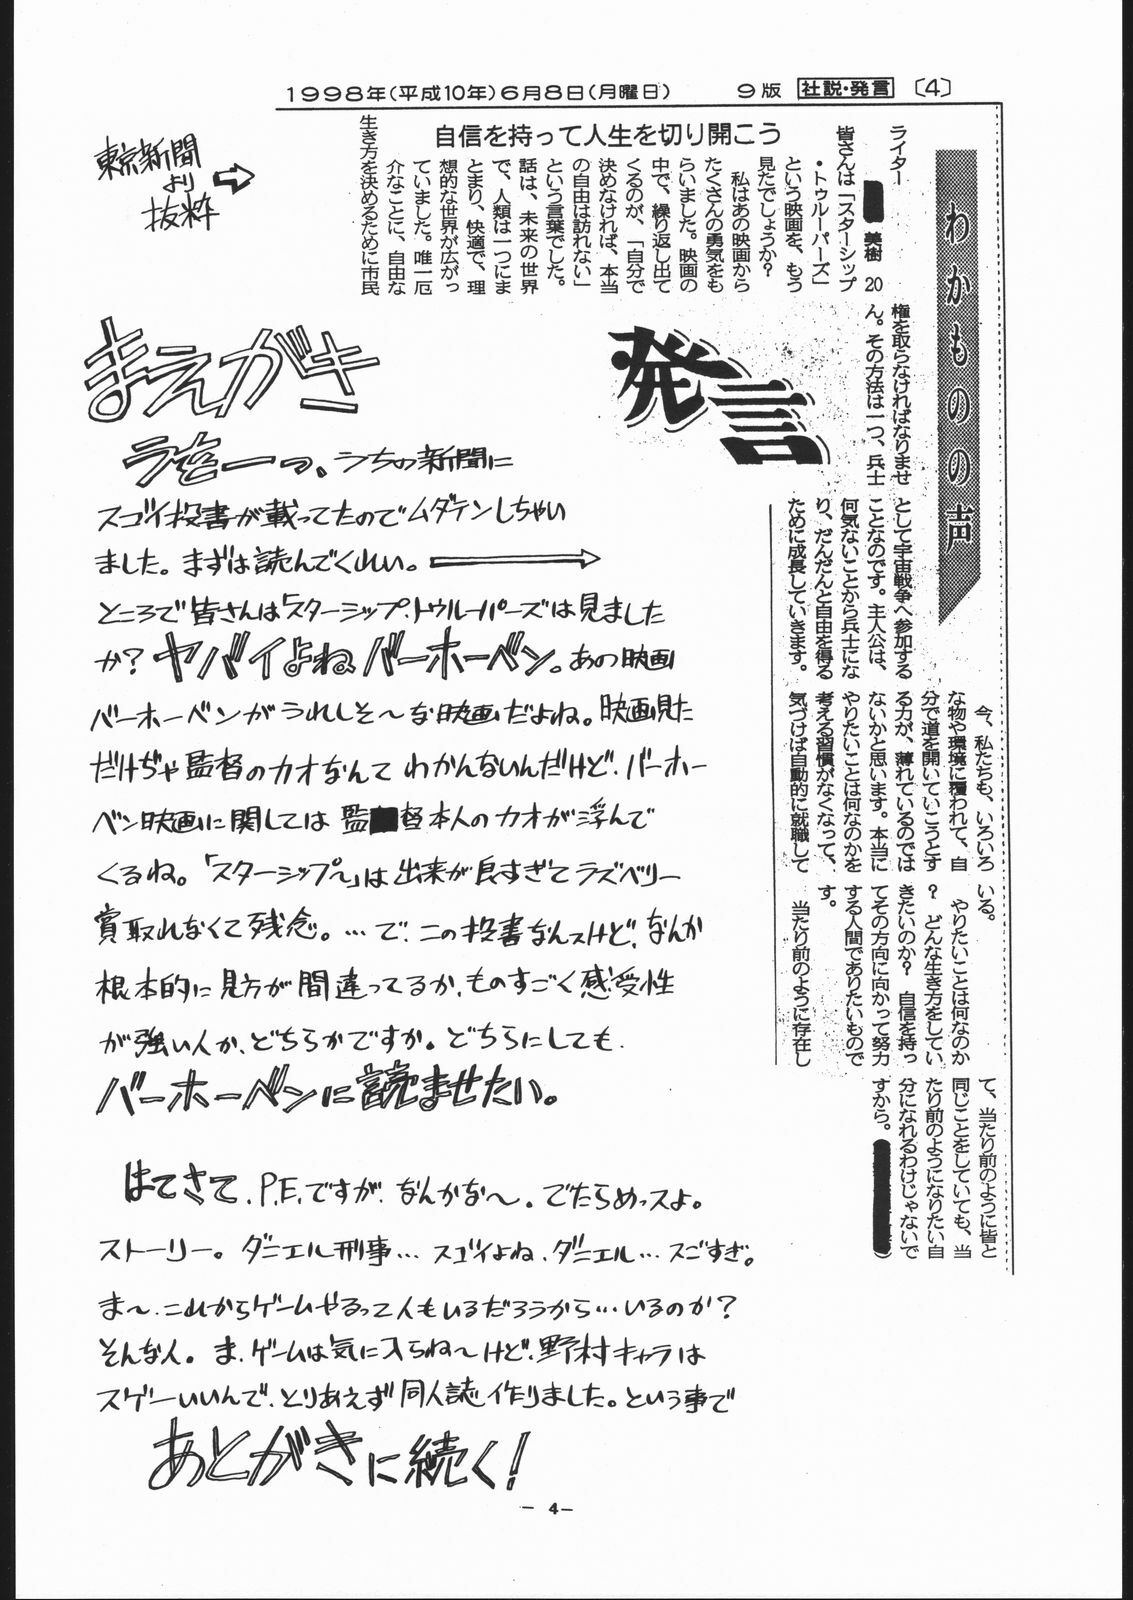 1998年(平成10年)6月8日(月曜日) 9版 社説・発言 〔4〕
東京新聞
より
抜粋
わかものの声
発言
自信を持って人生を切り開こう
ライター
美樹 20
皆さんは「スターシップ
・トゥルーパーズ」
という映画を、もう
見たでしょうか?
私はあの映画から
たくさんの勇気をも
らいました。映画の
中で、繰り返し出て
くるのが、「自分で
決めなければ、本当
の自由は訪れない」
という言葉でした。
話は、未来の世界
で、人類は一つにま
とまり、快適で、理
想的な世界が広がっ
ていました。唯一厄
介なことに、自由な
生き方を決めるために市民
権を取らなければなりませ
ん。その方法は一つ、兵士
として宇宙戦争へ参加する
ことなのです。主人公は、
何気ないことから兵士にな
り、だんだんと自由を得る
ために成長していきます。
今、私たちも、いろいろ
な物や環境に覆われて、自
分で道を開いていこうとす
る力が、薄れているのでは
ないかと思います。本当に
やりたいことは何なのかを
考える習慣がなくなって、
気づけば自動的に就職して
いる。
やりたいことは何なのか
? どんな生き方をしてい
きたいのか? 自信を持っ
てその方向に向かって努力
する人間でありたいもので
す。
当たり前のように存在し
て、当たり前のように皆と
同じことをしていても、当
たり前のようになりたい自
分になれるわけじゃないで
すから。
まえがき
うちの新聞に
スゴイ投書が載ってたのでムダテンしちゃい
ました。まずは読んでくれい。
ところで皆さんは「スターシップ・トゥルーパーズ」は見ました
か?ヤバイよねバーホーベン。あの映画
バーホーベンがうれしそ〜な映画だよね。映画見た
だけぢゃ監督のカオなんてわかんないんだけど、バーホー
ベン映画に関しては監督本人のカオが浮んで
くるね。「スターシップ〜」は出来が良すぎてラズベリー
賞取れなくて残念。…で、この投書なんスけど、なんか
根本的に見方が間違ってるか、ものすごく感受性
が強い人か、どちらかですか。どちらにしても、
バーホーベンに読ませたい。
はてさて、P.E.ですが、なんかな〜。でたらめっスよ。
ストーリー。ダニエル刑事…スゴイよね、ダニエル…スごすぎ。
ま〜、これからゲームやるって人もいるだろうから…いるのか?
そんな人。ま、ゲームは気に入らね〜けど、野村キャラは
スゲーいいんで、とりあえず同人誌作りました。という事で
あとがきに続く!
- 4 -